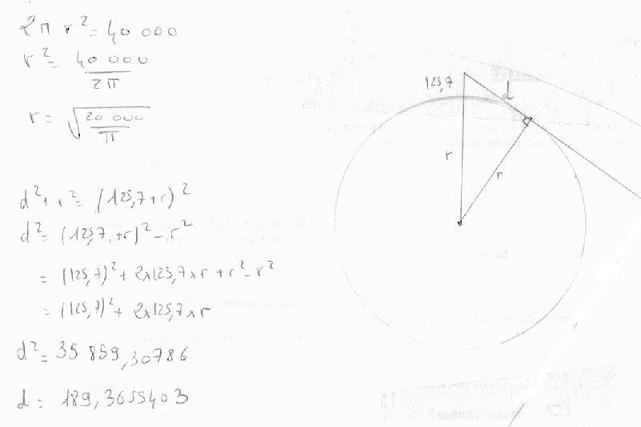 2π r² = 40 000
r² = 40 000 / 2π
r = √(20 000 / π)
d² + r² = (125,7 + r)²
d² = (125,7 + r)² - r²
= (125,7)² + 2×125,7×r + r² - r²
= (125,7)² + 2×125,7×r
d² = 35 859,30786
d = 189,3655403
125,7
d
r
r